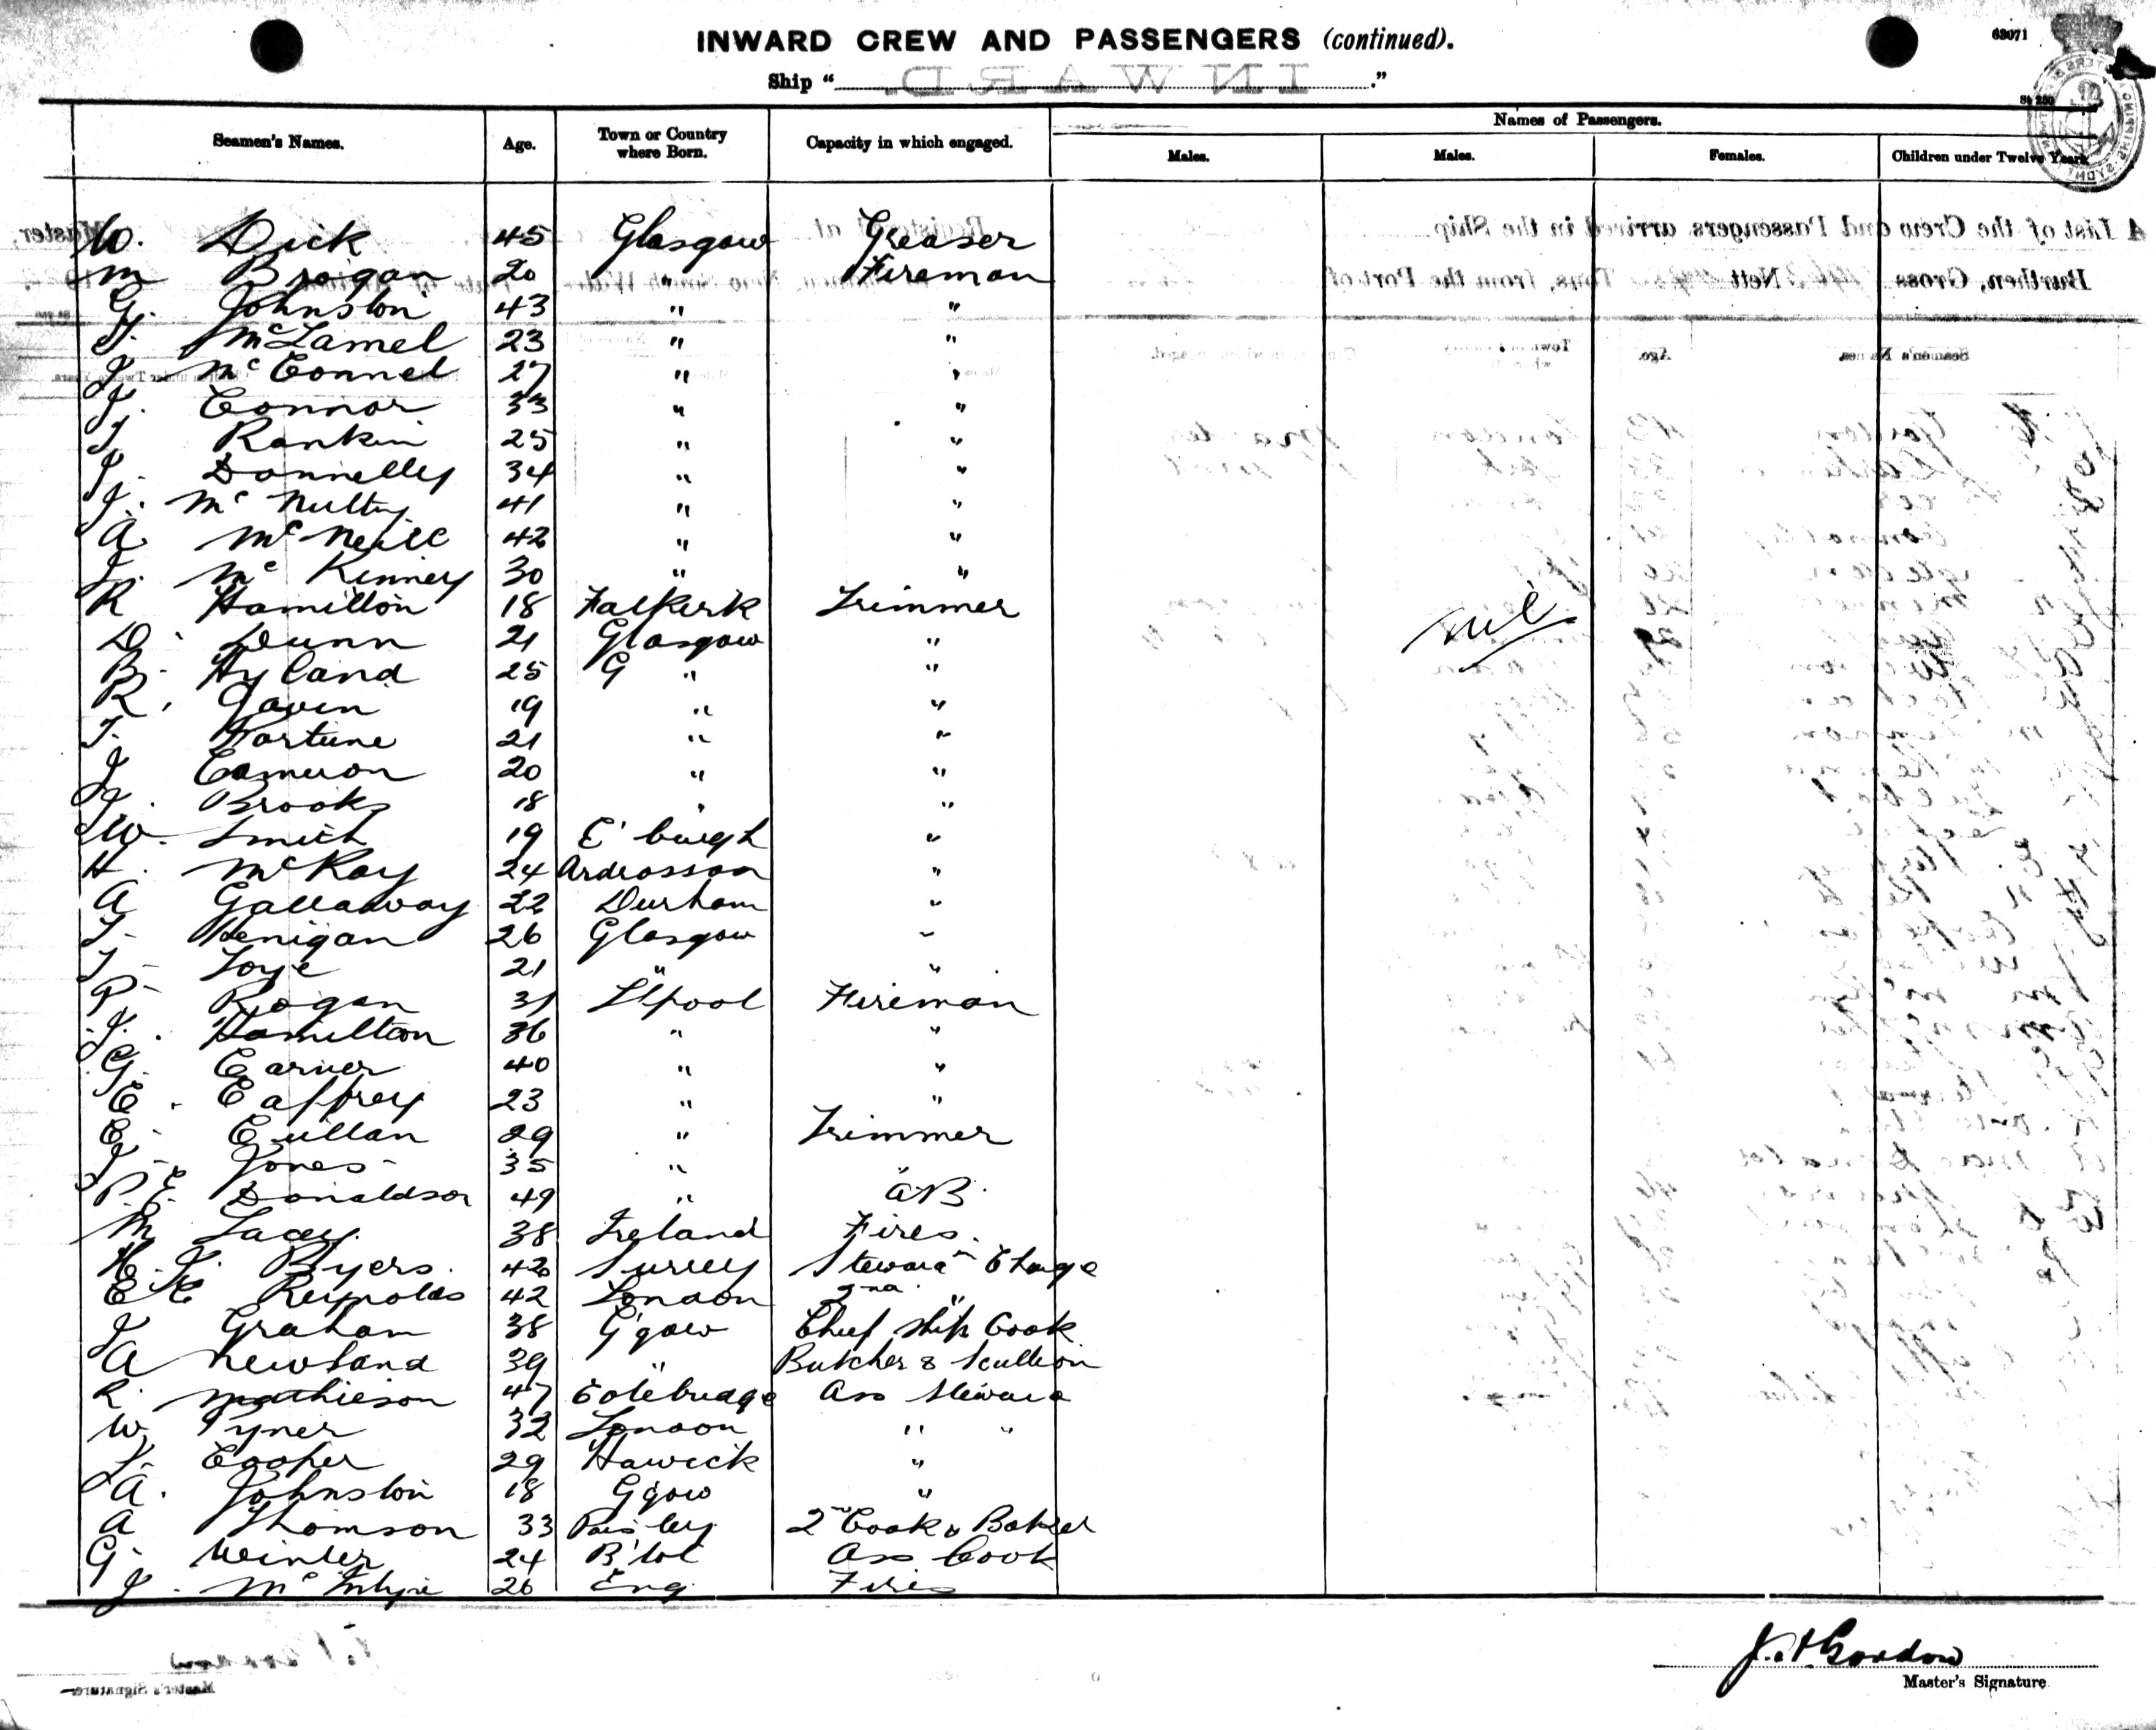 INWARD CREW AND PASSENGERS (continued).
63071
Ship " "
St 250
Seamen's Names. Age. Town or Country where Born. Capacity in which engaged. Names of Passengers.
Males. Males. Females. Children under Twelve Years.
W. Dick 45 Glasgow Greaser
M Brogan 20 " Fireman
G. Johnston 43 " "
J. McLamel 23 " "
J McConnel 27 " "
J. Connor 33 " "
J Rankin 25 " "
J. Donnelly 34 " "
J. McNulty 41 " "
A McNeill 42 " "
J. McKinney 30 " "
R Hamilton 18 Falkirk Trimmer
nil
D. Dunn 21 Glasgow "
B. Hyland 25 G " "
R. Gavin 19 " "
T. Fortune 21 " "
J Cameron 20 " "
J. Brooks 18 " "
W. Smith 19 E'burgh "
H. McKay 24 Ardrossan "
A Gallaway 22 Durham "
T. Henigan 26 Glasgow "
T. Loye 21 " "
P. Rogan 31 L'pool Fireman
J. Hamilton 36 " "
G. Carver 40 " "
E. Caffrey 23 " "
E. Cullan 29 " Trimmer
J. Jones 35 " "
P. E. Donaldson 49 " AB.
M Lacey 38 Ireland Fires.
H. J. Byers. 42 Surrey Steward in Charge
E K Reynolds 42 London 2nd "
J Graham 38 G'gow Chief ship Cook
A Newland 39 " Butcher & Scullion
R. Mathieson 47 Cotebridge Ass Steward
W. Pyner 32 London " "
J. Cooper 29 Hawick "
A. Johnston 18 G'gow "
A Thomson 33 Paisley 2nd Cook & Baker
G. Winter 24 B'tol Ass Cook
J. Mc 26 Eng. Fires
J. A. Gordon
Master's Signature